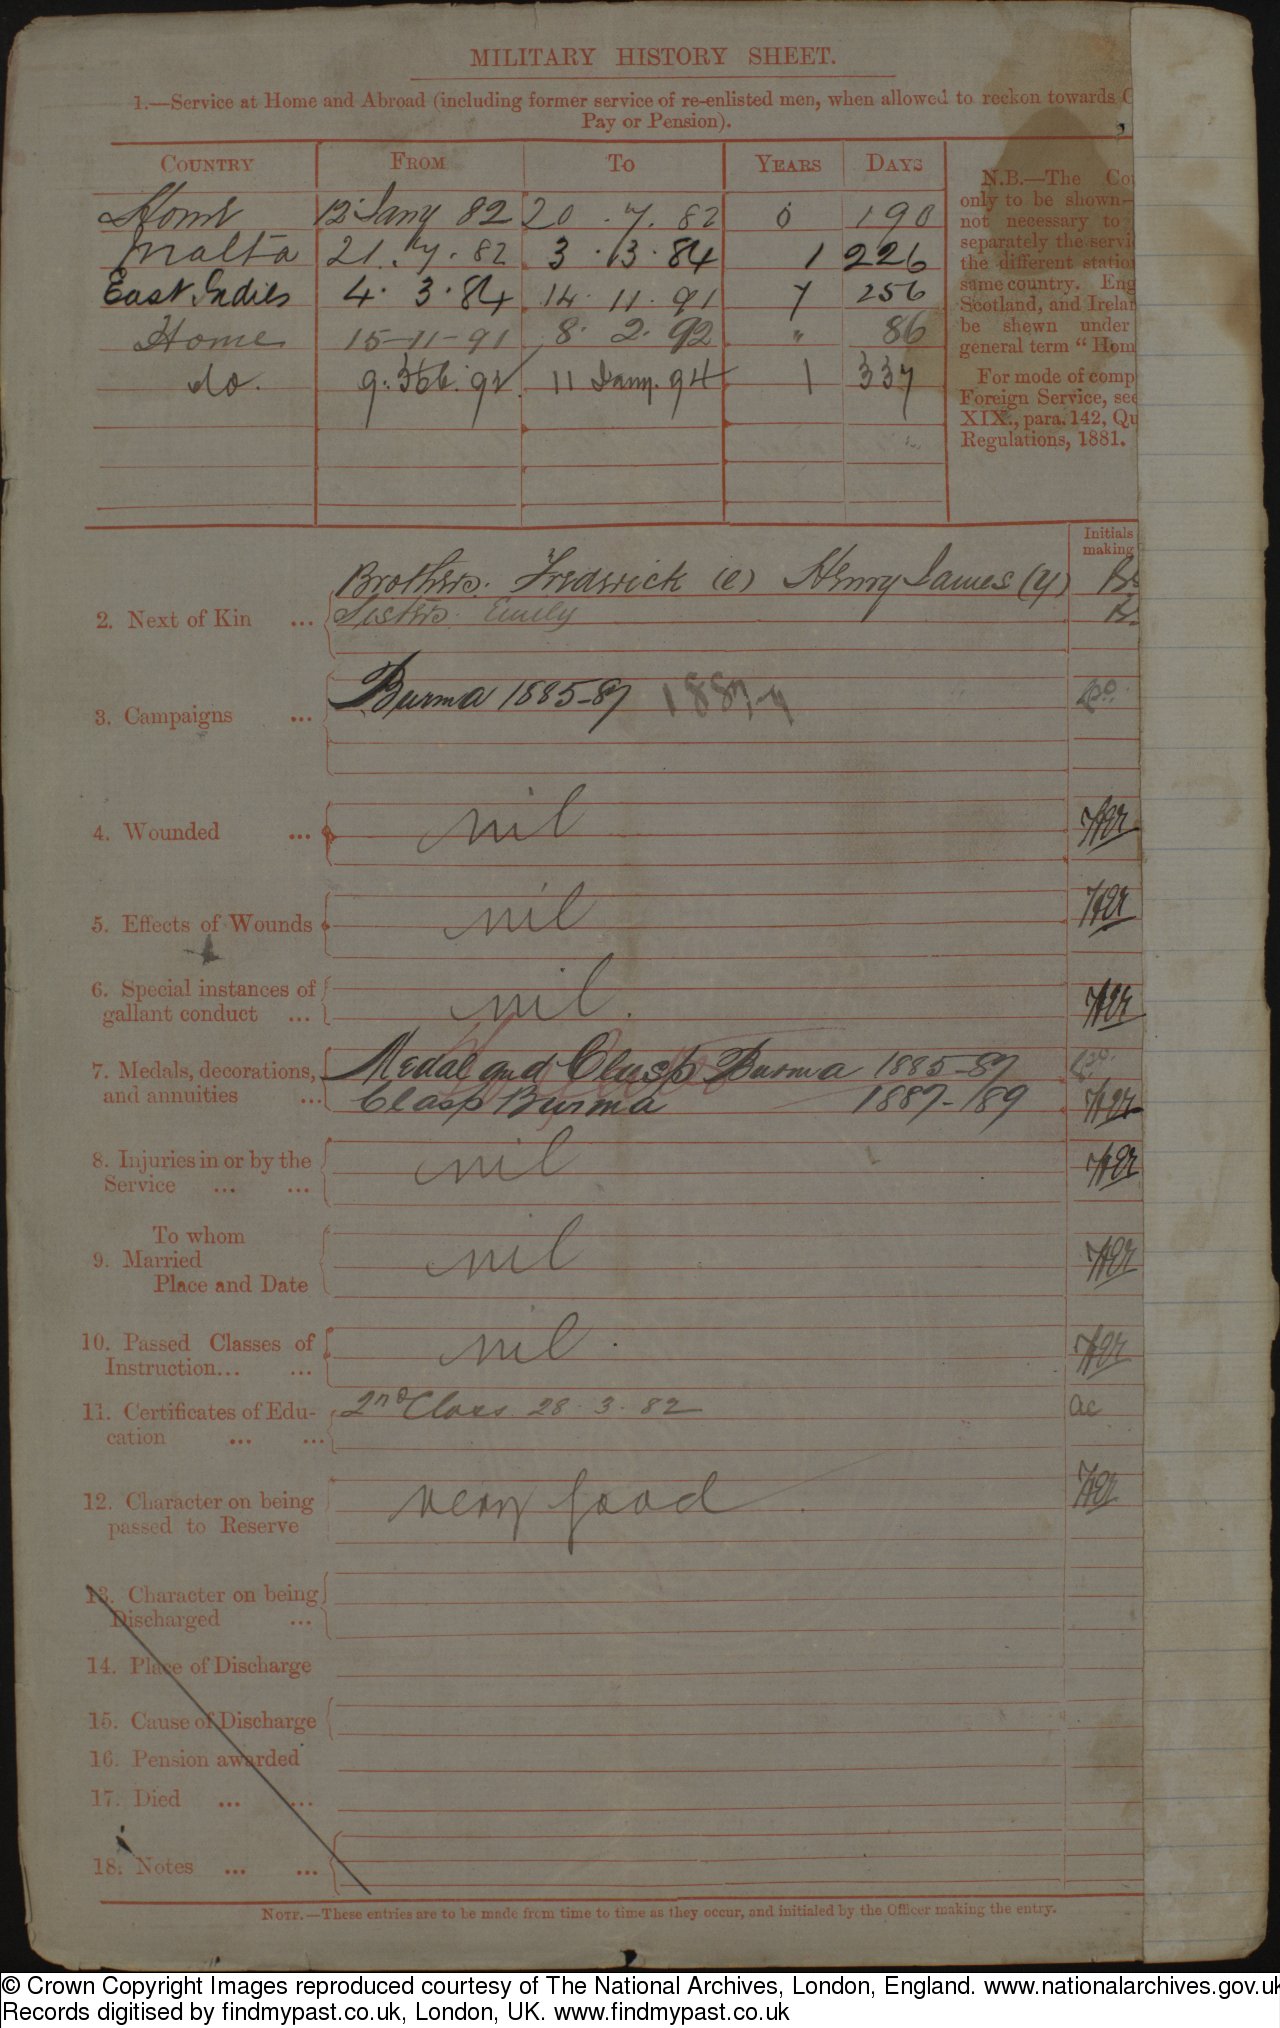 MILITARY HISTORY SHEET.
1.—Service at Home and Abroad (including former service of re-enlisted men, when allowed to reckon towards
Pay or Pension).
COUNTRY FROM TO YEARS DAYS
Home 12 Jany 82 20 . 7. 82 0 190
Malta 21 . 7 . 82 3 . 3 . 84 1 226
East Indies 4 . 3 . 84 14 . 11 . 91 7 256
Home 15-11-91 8 . 2 . 92 " 86
do. 9. Feb. 92 11 Jany. 94 1 337
N.B.—The Co
only to be shown—
not necessary to
separately the servi
the different station
same country. Eng
Scotland, and Irelan
be shewn under
general term "Hom
For mode of comp
Foreign Service, see
XIX., para. 142, Qu
Regulations, 1881.
Initials
making
Brothers. Frederick (e) Henry James (y)
2. Next of Kin ... Sisters. Emily
3. Campaigns ... Burma 1885-87 1887-9
4. Wounded ... nil
5. Effects of Wounds nil
6. Special instances of
gallant conduct ... nil.
7. Medals, decorations,
and annuities ...
Medal and Clasp Burma 1885-87
Clasp Burma 1887-189
8. Injuries in or by the
Service ... ... nil
To whom
9. Married
Place and Date
nil
10. Passed Classes of
Instruction... ... nil.
11. Certificates of Edu-
cation ... ...
2nd Class 28. 3. 82 ac
12. Character on being
passed to Reserve
very good.
13. Character on being
Discharged ...
14. Place of Discharge
15. Cause of Discharge
16. Pension awarded
17. Died ... ...
18. Notes ... ...
NOTE.—These entries are to be made from time to time as they occur, and initialed by the Officer making the entry.
© Crown Copyright Images reproduced courtesy of The National Archives, London, England. www.nationalarchives.gov.uk
Records digitised by findmypast.co.uk, London, UK. www.findmypast.co.uk